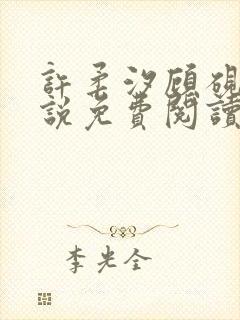 許柔汐顧硯
說免費閱讀
李光全